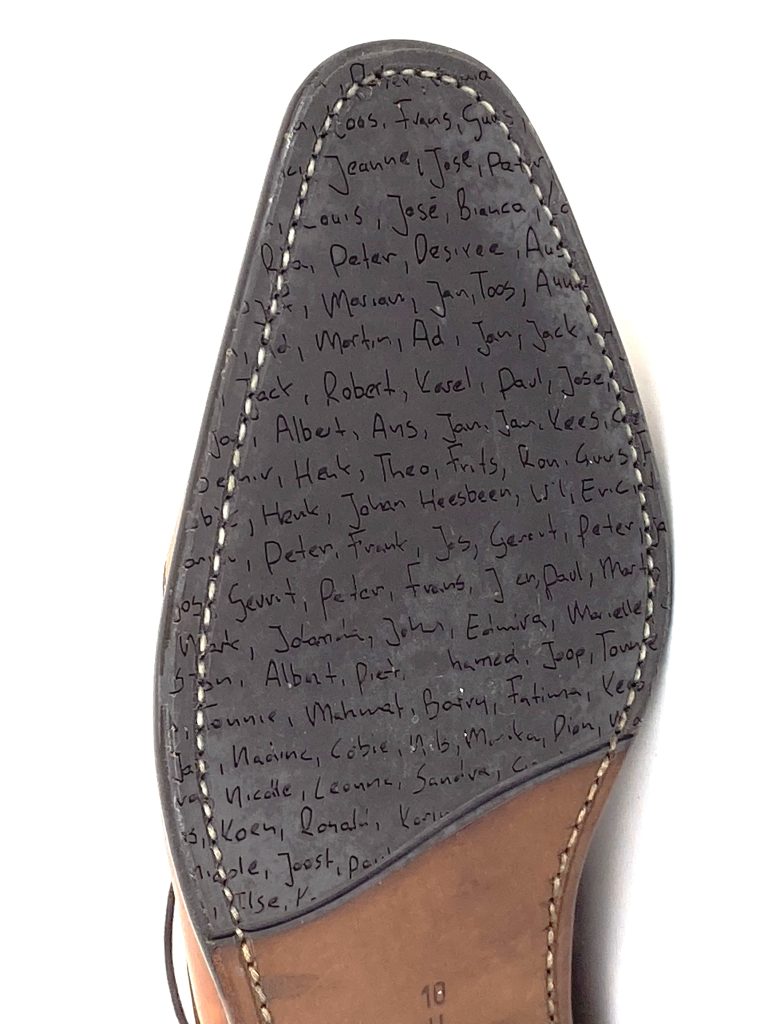 Peter,
Koos, Frans, Guus,
Jeanne, José, Peter
Louis, José, Bianca,
Ria, Peter, Desiree, Aus
Marian, Jan, Toos, Annie
Ad, Martin, Ad, Jan, Jack,
Jack, Robert, Karel, Paul, José,
Albert, Ans, Jan, Jan, Kees,
Henk, Theo, Frits, Ron, Guus
Henk, Johan Heesbeen, Wil, Eric,
Peter, Frank, Jos, Gerrit, Peter,
Jos, Gerrit, Peter, Frans, Jan, Paul, Mart
Mark, Jolanda, John, Edmira, Marielle
Stan, Albert, Piet, hamed, Joop, Tonnie
Tonnie, Mahmat, Barry, Fatima, Kees,
Jan, Nadine, Cobie, Nils, Marika, Dion,
Nicolle, Leonne, Sandra,
Koen, Ronald, Karin
Nicole, Joost, Paul
Ilse, K
10